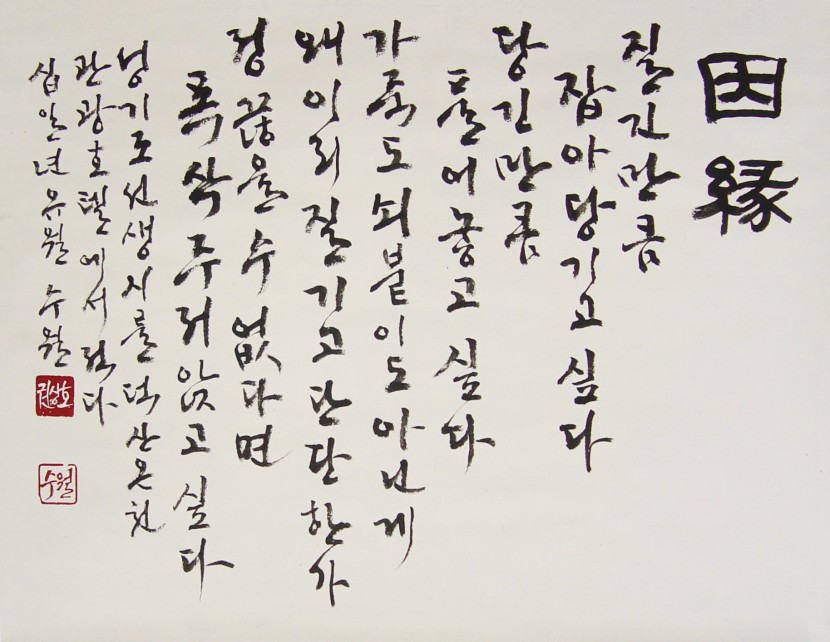 因緣
질긴만큼
잡아당기고 싶다
당긴만큼
풀어놓고 싶다
가죽도 쇠붙이도 아닌게
왜 이리 질기고 단단한가
정 끊을 수 없다면
폭싹 주저앉고 싶다
성기조선생시를 덕산온천
관광호텔에서 적다
십일년 유월 수월
권상호
수월